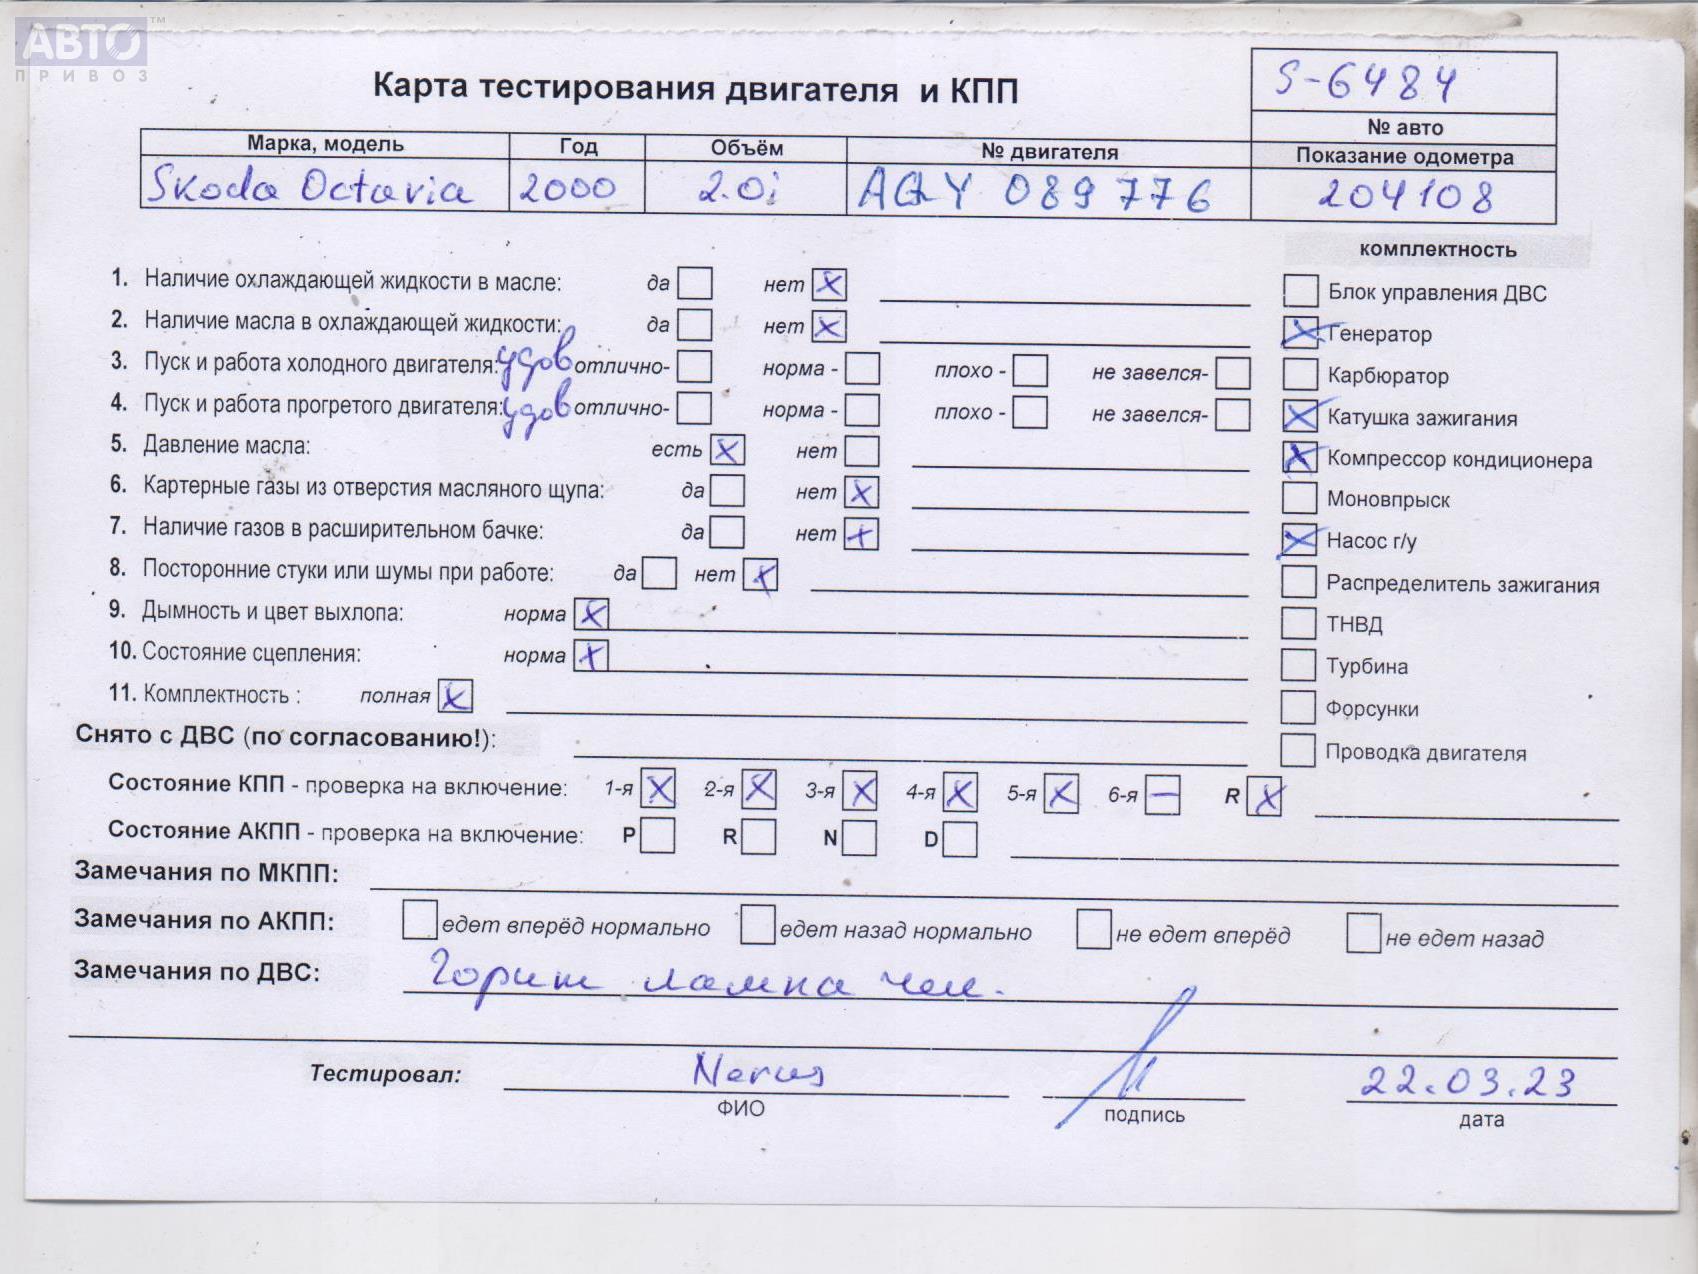 АВТО™
ПРИВОЗ
Карта тестирования двигателя и КПП
S-6484
№ авто
Марка, модель Год Объём № двигателя Показание одометра
Skoda Octavia 2000 2.0i AQY 089776 204108
комплектность
1. Наличие охлаждающей жидкости в масле: да нет x
2. Наличие масла в охлаждающей жидкости: да нет x
3. Пуск и работа холодного двигателя: удов отлично- норма - плохо - не завелся-
4. Пуск и работа прогретого двигателя: удов отлично- норма - плохо - не завелся-
5. Давление масла: есть x нет
6. Картерные газы из отверстия масляного щупа: да нет x
7. Наличие газов в расширительном бачке: да нет x
8. Посторонние стуки или шумы при работе: да нет x
9. Дымность и цвет выхлопа: норма x
10. Состояние сцепления: норма x
11. Комплектность : полная x
Блок управления ДВС
x Генератор
Карбюратор
x Катушка зажигания
x Компрессор кондиционера
Моновпрыск
x Насос г/у
Распределитель зажигания
ТНВД
Турбина
Форсунки
Проводка двигателя
Снято с ДВС (по согласованию!):
Состояние КПП - проверка на включение: 1-я x 2-я x 3-я x 4-я x 5-я x 6-я — R x
Состояние АКПП - проверка на включение: P R N D
Замечания по МКПП:
Замечания по АКПП: едет вперёд нормально едет назад нормально не едет вперёд не едет назад
Замечания по ДВС: Горит лампа чек.
Тестировал: 22.03.23
ФИО подпись дата